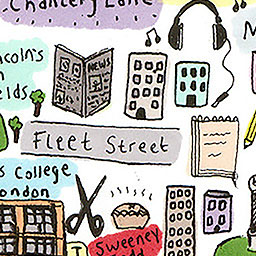 Chancery Lane
ncoln's
n
elds
NEWS
Fleet Street
s College
London
Sweeney